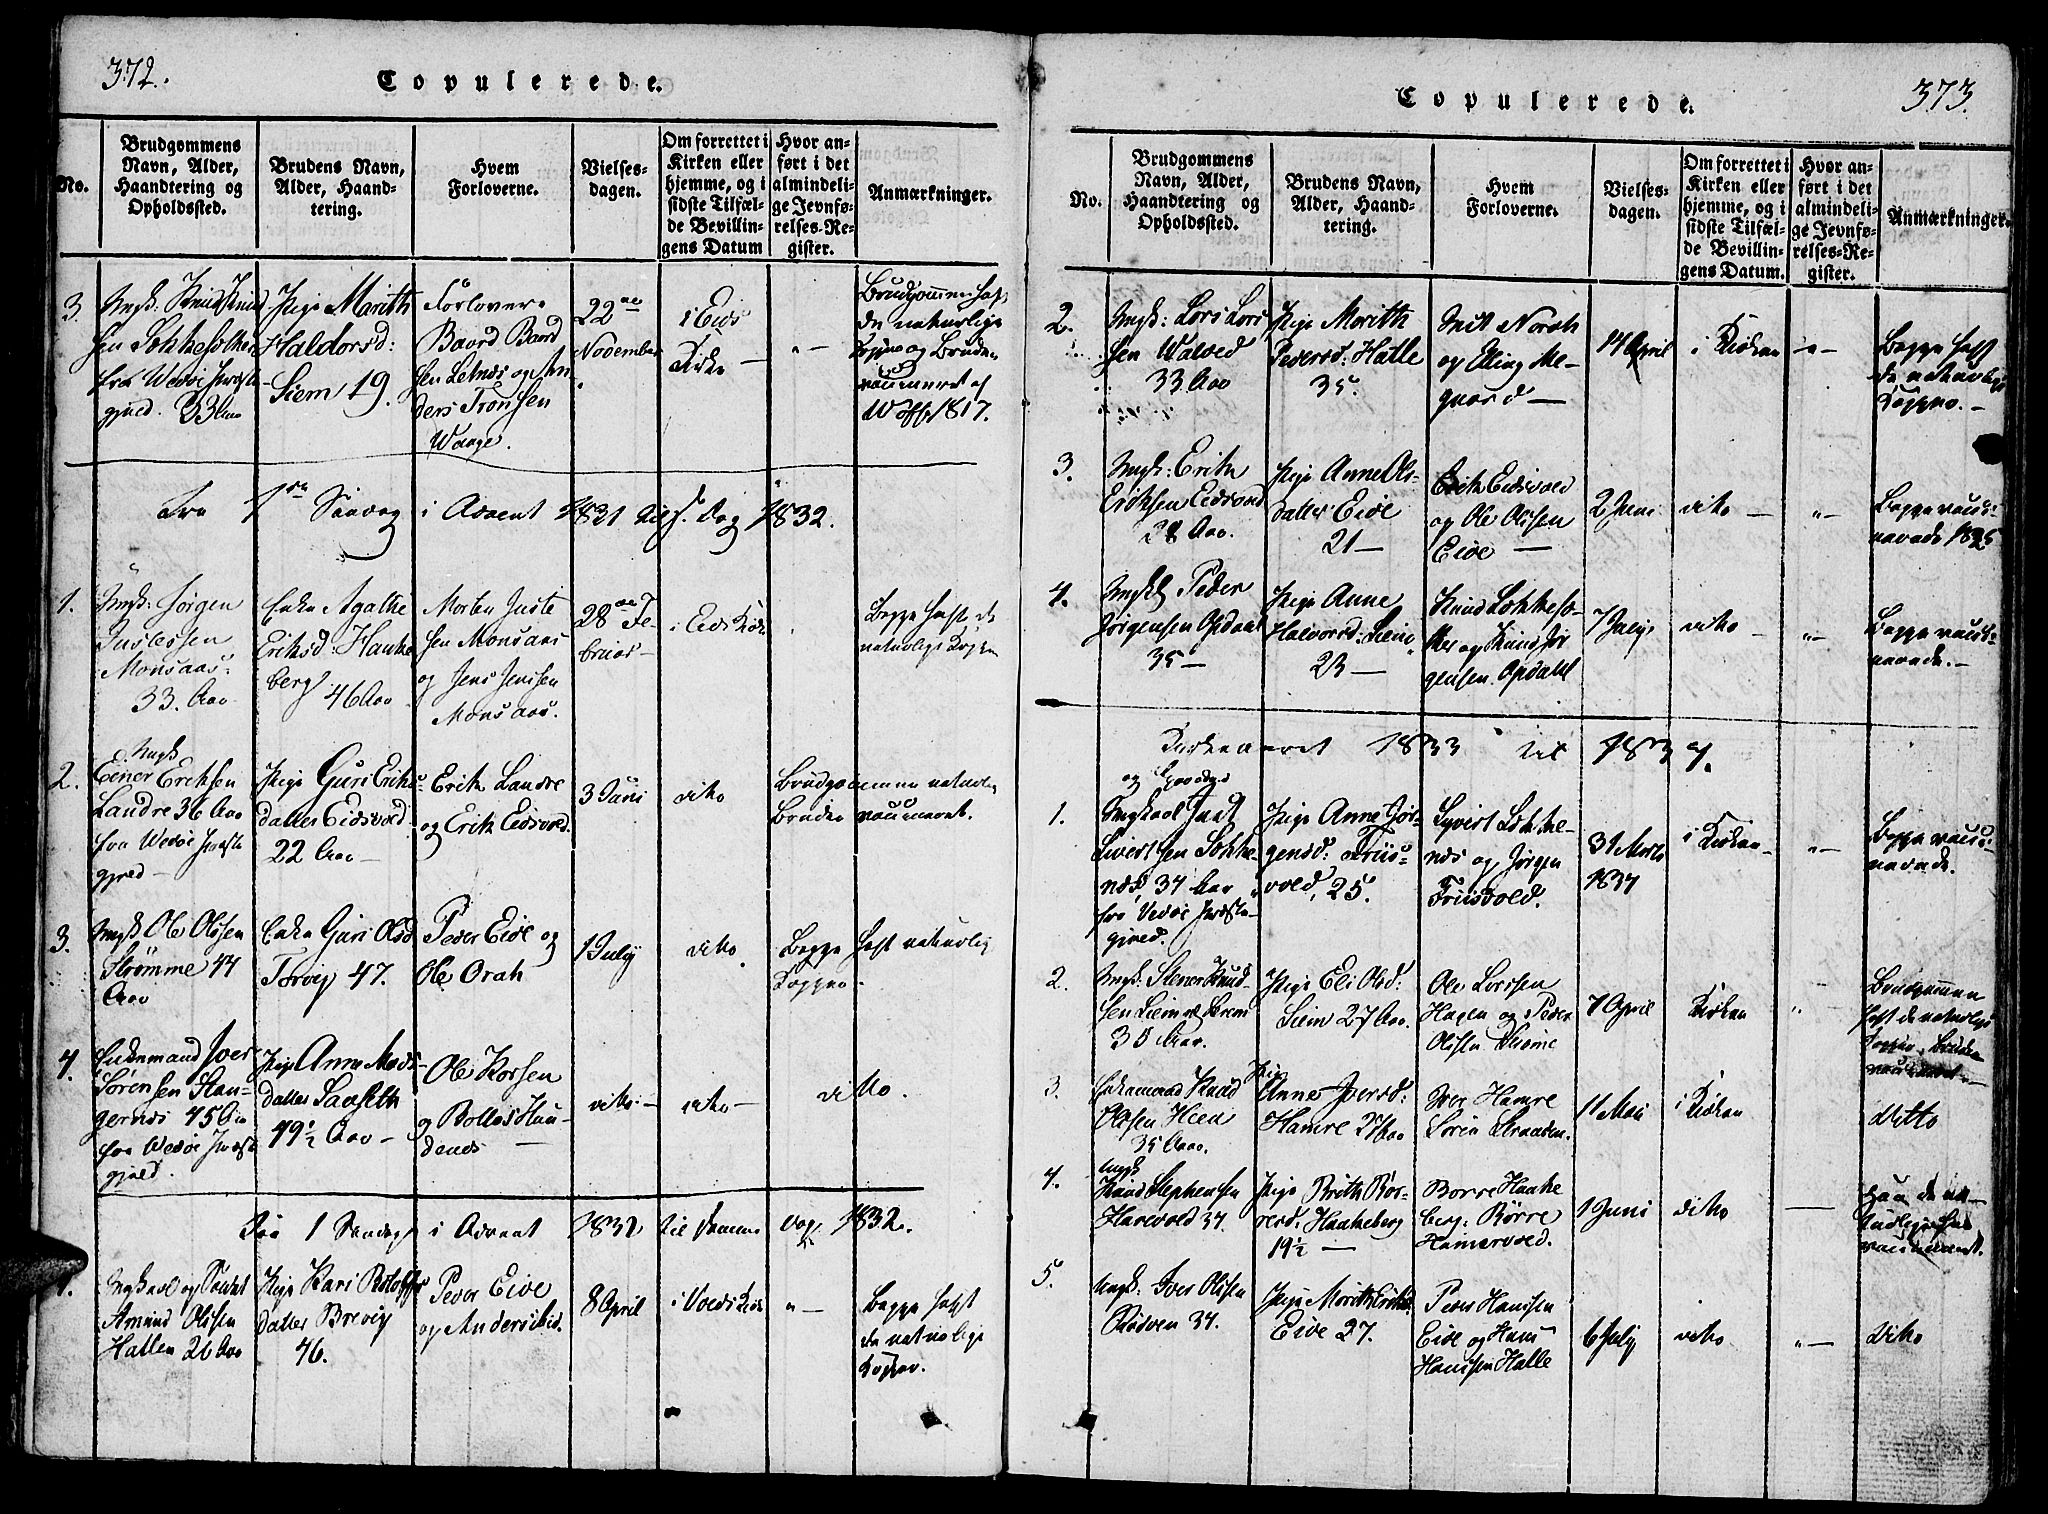 372.
Copulerede.
No.
Brudgommens
Navn, Alder,
Haandtering og
Opholdssted.
Brudens Navn,
Alder, Haand-
tering.
Hvem
Forloverne.
Vielses-
dagen.
Om forrettet i
Kirken eller
hjemme, og i
sidste Tilfæl-
de Bevillin-
gens Datum
Hvor an-
ført i det
almindeli-
ge Jevnfø-
relses-Re-
gister.
Anmærkninger.
3.
Ungk: Knud Knud
sen
fra Wedøe Præste
gjeld. 33 Aar
Pige Marith
Haldorsd:
Siem 19.
Forlovere
Baard Baard
sen Letnes og An
ders Tronsen
Waage.
22de
November
i Eids
Kirke
"—
Brudgommen haft
de naturlige
Kopper og Bruden
vaccineret af
1817.
Fra 1ste Søndag i Advent 1831 til s. Dag 1832.
1.
Ungk: Jørgen
Justesen
Monsaas
33. Aar
Enke Agathe
Eriksd: Hauke
berg 46 Aar
Morten Juste
sen Monsaas
og Jens Jensen
Monsaas.
28de Fe-
bruar
i Eids Kirke
Begge haft de
naturlige Kopper
2.
Ungk
Einer Eriksen
Landre 36 Aar
fra Wedøe Præste
gjeld —
Pige Guri Eriks-
datter Eidsvold
22 Aar —
Erik Landre
og Erik Eidsvold.
3 Juni
dito
Brudgommen naturlig
Bruden vaccineret.
3.
Ungk Ole Olsen
Strømme 44
Aar
Enke Guri Olsd
Torvig 47.
Peder Eide og
Ole Orah
1 July
dito
Begge haft naturlig
Kopper.
4.
Enkemand Iver
Sørensen Stan-
gernes 45 Aar
fra Wedøe Præste
gjeld.
Pige Anne Mads-
datter Sanseth
49½ Aar —
Ole Korsen
og
dito —
dito —
dito.
Fra 1 Søndag i Advent 1832 til samme Dag 1832.
1.
Ungkarl og Soldat
Amund Olsen
Hallen 26 Aar
Pige Kari
datter Brevig
46.
Peder Eide
og Anders
8 April
i Voeds Kirke
"—
Begge haft
de naturlige
Kopper.
373.
Copulerede.
No.
Brudgommens
Navn, Alder,
Haandtering og
Opholdssted.
Brudens Navn,
Alder, Haand-
tering.
Hvem
Forloverne.
Vielses-
dagen.
Om forrettet i
Kirken eller
hjemme, og i
sidste Tilfæl-
de Bevillin-
gens Datum.
Hvor an-
ført i det
almindeli-
ge Jevnfø-
relses-Re-
gister.
Anmærkninger.
2.
Ungk: Lars Lars
sen
33 Aar
Pige Marith
Pedersd: Halle
35.
og Elling Me-
gaard —
14 April
i Kirken
"—
Begge haft
de naturlige
Kopper. —
3.
Ungk: Erik
Eriksen Eidsvold
28 Aar.
Pige Anne Ols-
datter Eide
21 —
Erik Eidsvold
og Ole Olsen
Eide —
2 Juni
dito —
"—
Begge vacci-
nerede 1825
4.
Ungk Peder
Jørgensen Opdal
35 —
Pige Anne
Halvorsd: Siem
23 —
og Knud Jør
gensen Opdahl
7 July
dito —
"—
Begge vacci-
nerede. —
Kirkeaaret 1833 til 1834.
1.
Ungkarl
Sivertsen Lokke-
nes, 34 Aar
fra Vedøe Præste-
gjeld.
Pige Anne Jør-
gensd: Friis-
vold, 25.
Syvert Lokke-
nes og Jørgen
Friisvold.
31 Marts
1834
i Kirken —
"—
Begge vacci-
nerede.
2.
Ungk: Stener Knud-
sen
Aar.
Pige Eli Olsd:
Siem 27 Aar.
Ole Larsen
Hagen og Peder
Olsen
7 April
Kirken
"
Brudgommen
haft de naturlige
Kopper, Bruden
vaccineret.
3.
Enkemand Knud
Olsen Hien
35 Aar.
Pige
Anne Iversd:
Hamre 27 Aar
Iver Hamre
Søren
11 Mai
i Kirken
ditto
4.
Ungk
Knud Stephensen
Harevold 34.
Pige Brith Bør-
resd: Haukeberg
19½ —
Børre Hauke
berg: Børre
Hamervold.
1 Juni
dito
—
5.
Ungk: Iver Olsen
Rødven 34.
Pige Marith Eriksd
Eide 27.
Peder Hansen
Eide og Hans
Hansen Halle
6 July
dito
"—
dito